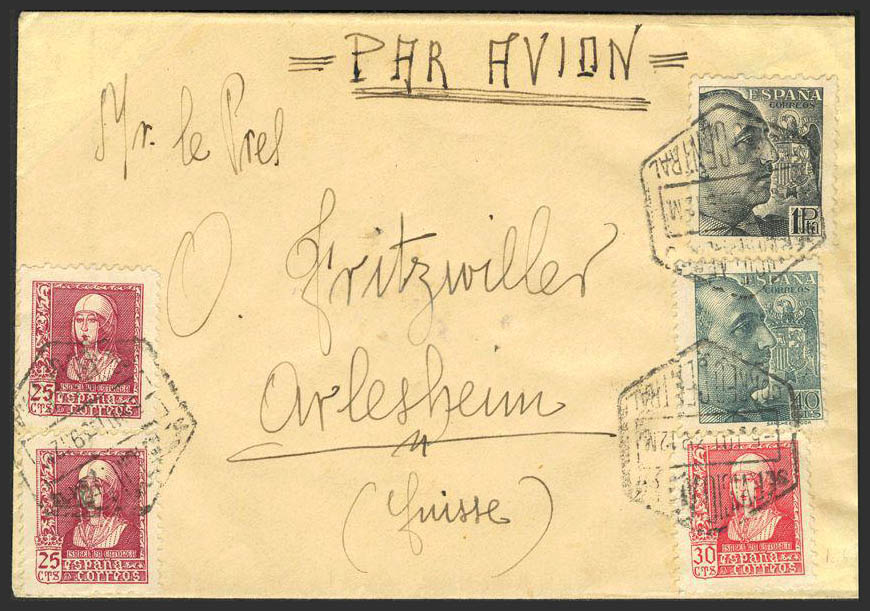 = PAR AVION =
Mr. le Pres
O. Fritzwiller
Arlesheim
(Suisse)
ESPAÑA
CORREOS
1 Pta
CENTRAL
12M
ESPAÑA
CORREOS
40
12M
25
CTS
ISABEL LA CATOLICA
ESPAÑA
CORREOS
25
CTS
ISABEL LA CATOLICA
ESPAÑA
CORREOS
30
CTS
ISABEL LA CATOLICA
ESPAÑA
CORREOS